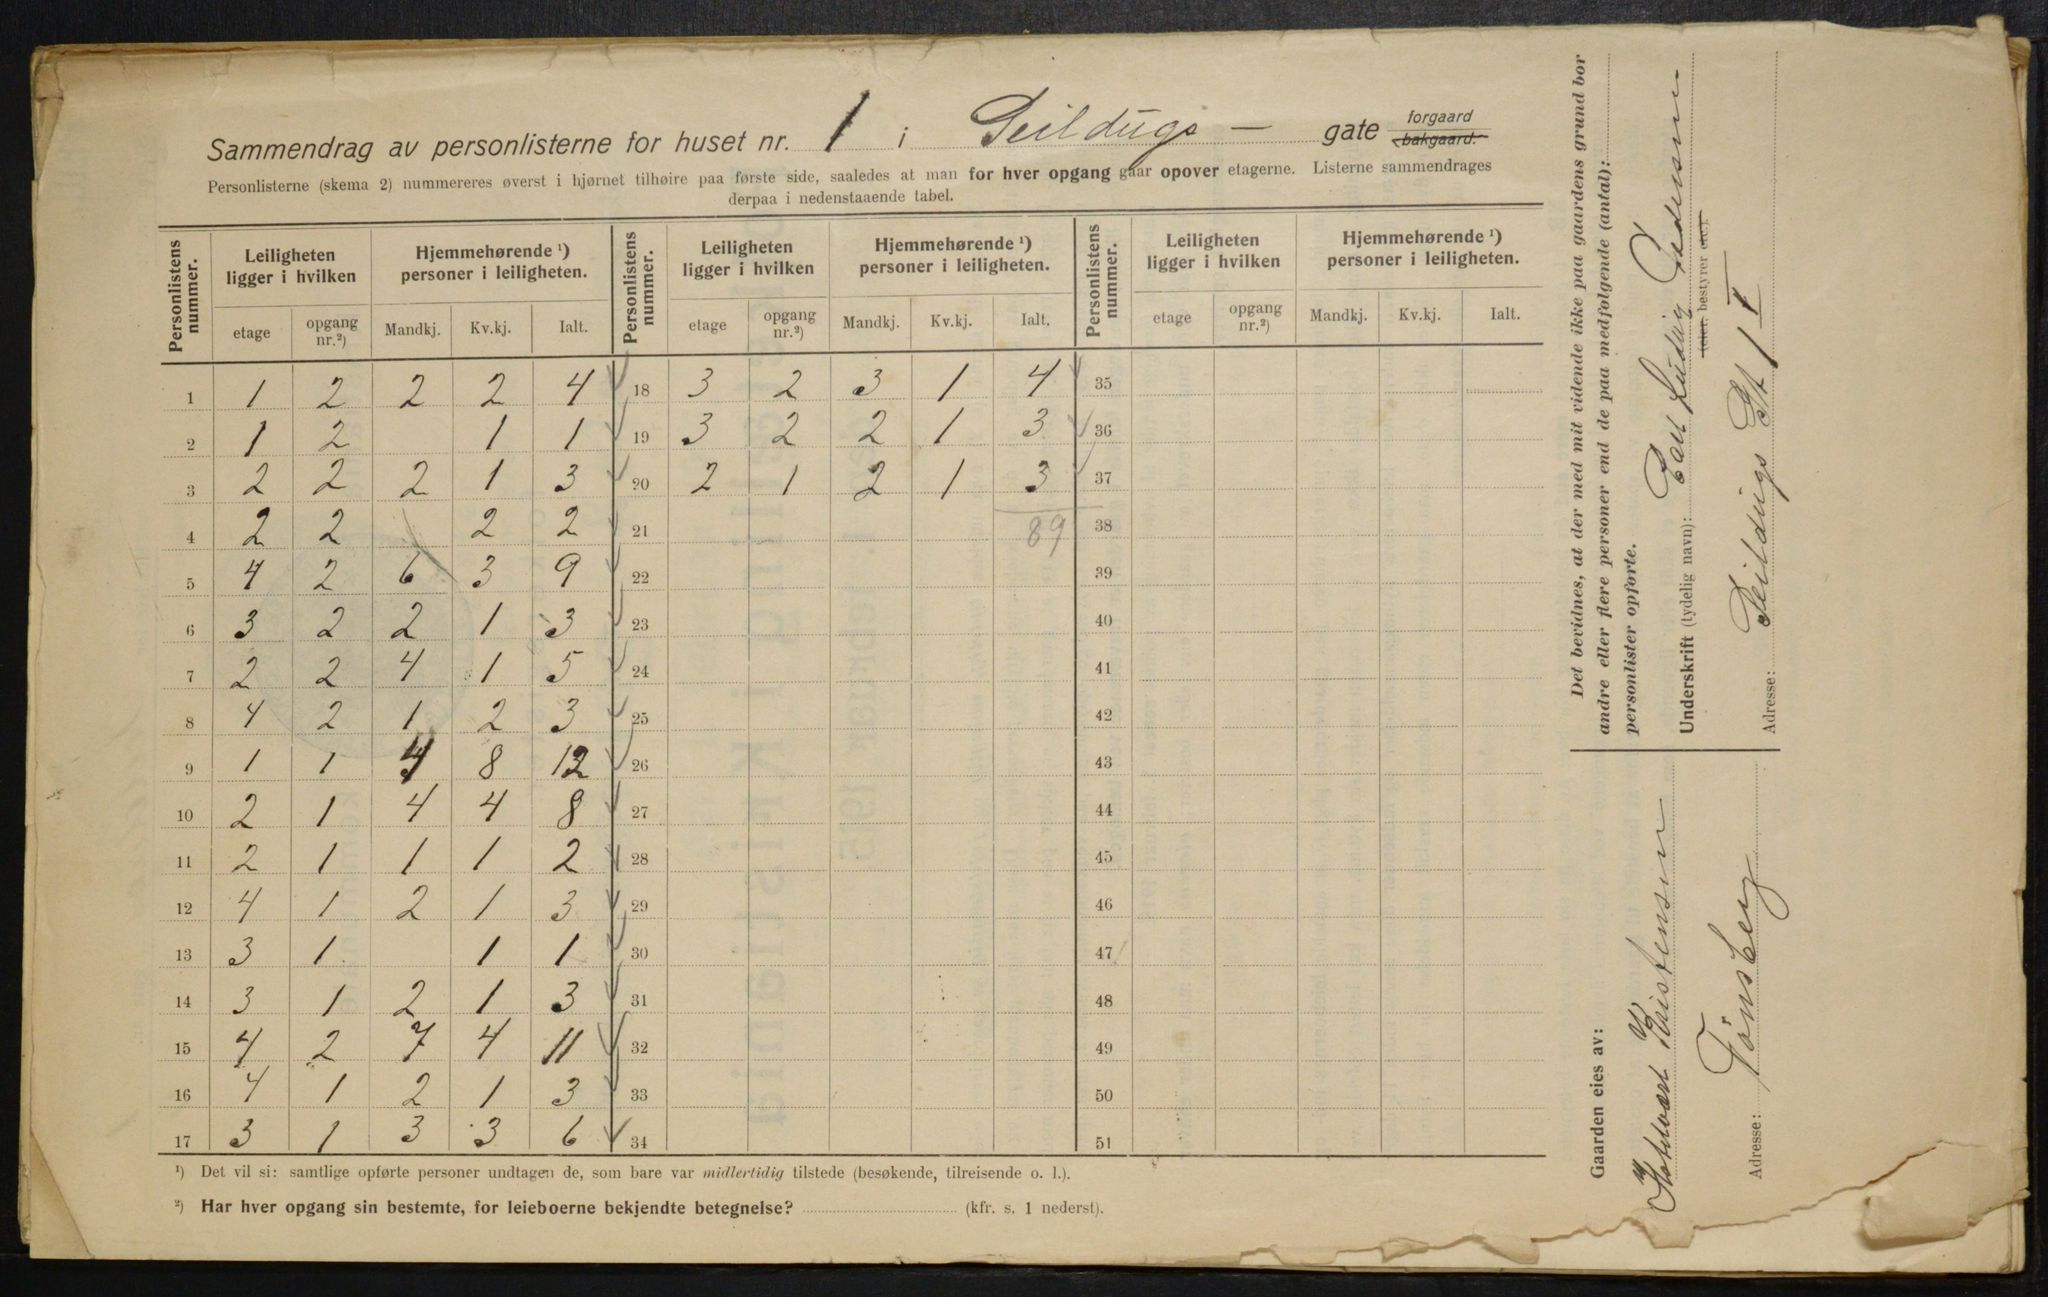 Sammendrag av personlisterne for huset nr. 1 i Seildugs – gate forgaard bakgaard.
Personlisterne (skema 2) nummereres øverst i hjørnet tilhøire paa første side, saaledes at man for hver opgang gaar opover etagerne. Listerne sammendrages
derpaa i nedenstaaende tabel.
Personlistens nummer. Leiligheten ligger i hvilken Hjemmehørende ¹) personer i leiligheten. Personlistens nummer. Leiligheten ligger i hvilken Hjemmehørende ¹) personer i leiligheten. Personlistens nummer. Leiligheten ligger i hvilken Hjemmehørende ¹) personer i leiligheten.
etage opgang nr.²) Mandkj. Kv.kj. Ialt. etage opgang nr.²) Mandkj. Kv.kj. Ialt. etage opgang nr.²) Mandkj. Kv.kj. Ialt.
1 1 2 2 2 4 18 3 2 3 1 4 35
2 1 2 1 1 19 3 2 2 1 3 36
3 2 2 2 1 3 20 2 1 2 1 3 37
4 2 2 2 2 21 89 38
5 4 2 6 3 9 22 39
6 3 2 2 1 3 23 40
7 2 2 4 1 5 24 41
8 4 2 1 2 3 25 42
9 1 1 4 8 12 26 43
10 2 1 4 4 8 27 44
11 2 1 1 1 2 28 45
12 4 1 2 1 3 29 46
13 3 1 1 1 30 47
14 3 1 2 1 3 31 48
15 4 2 7 4 11 32 49
16 4 1 2 1 3 33 50
17 3 1 3 3 6 34 51
¹) Det vil si: samtlige opførte personer undtagen de, som bare var midlertidig tilstede (besøkende, tilreisende o. l.).
²) Har hver opgang sin bestemte, for leieboerne bekjendte betegnelse? (kfr. s. 1 nederst).
Det bevidnes, at der med mit vidende ikke paa gaardens grund bor
andre eller flere personer end de paa medfølgende (antal):
personlister opførte.
Underskrift (tydelig navn): Carl Ludvig Pedersen
(eier, bestyrer etc.).
Adresse: Seildugs Gt 1 I
Gaarden eies av:
Kristensen
Adresse: Tønsberg